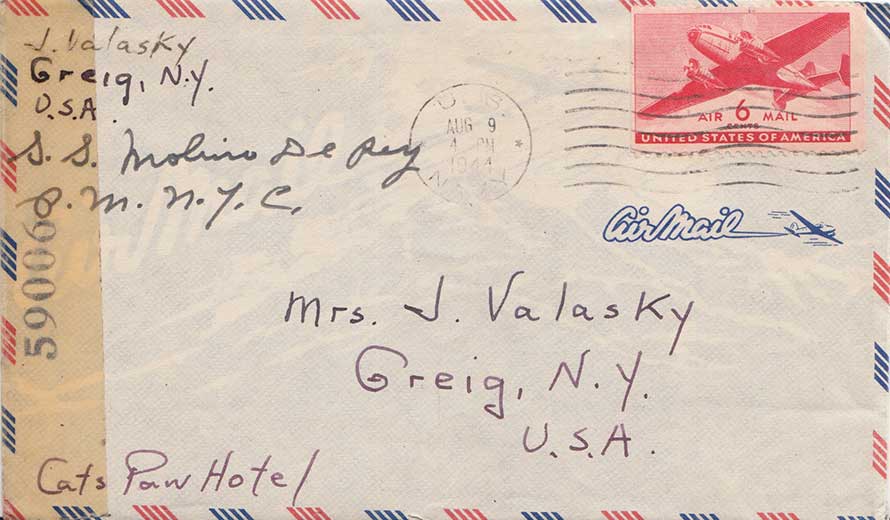 J. Valasky
Greig, N.Y.
U.S.A.
S. S. Molino Del Rey
P. M. N. Y. C.
59006
U.S.
AUG 9
4 PM
1944
NAVY
AIR 6 MAIL
CENTS
UNITED STATES OF AMERICA
Air Mail
Mrs. J. Valasky
Greig, N.Y.
U.S.A.
Cats Paw Hotel